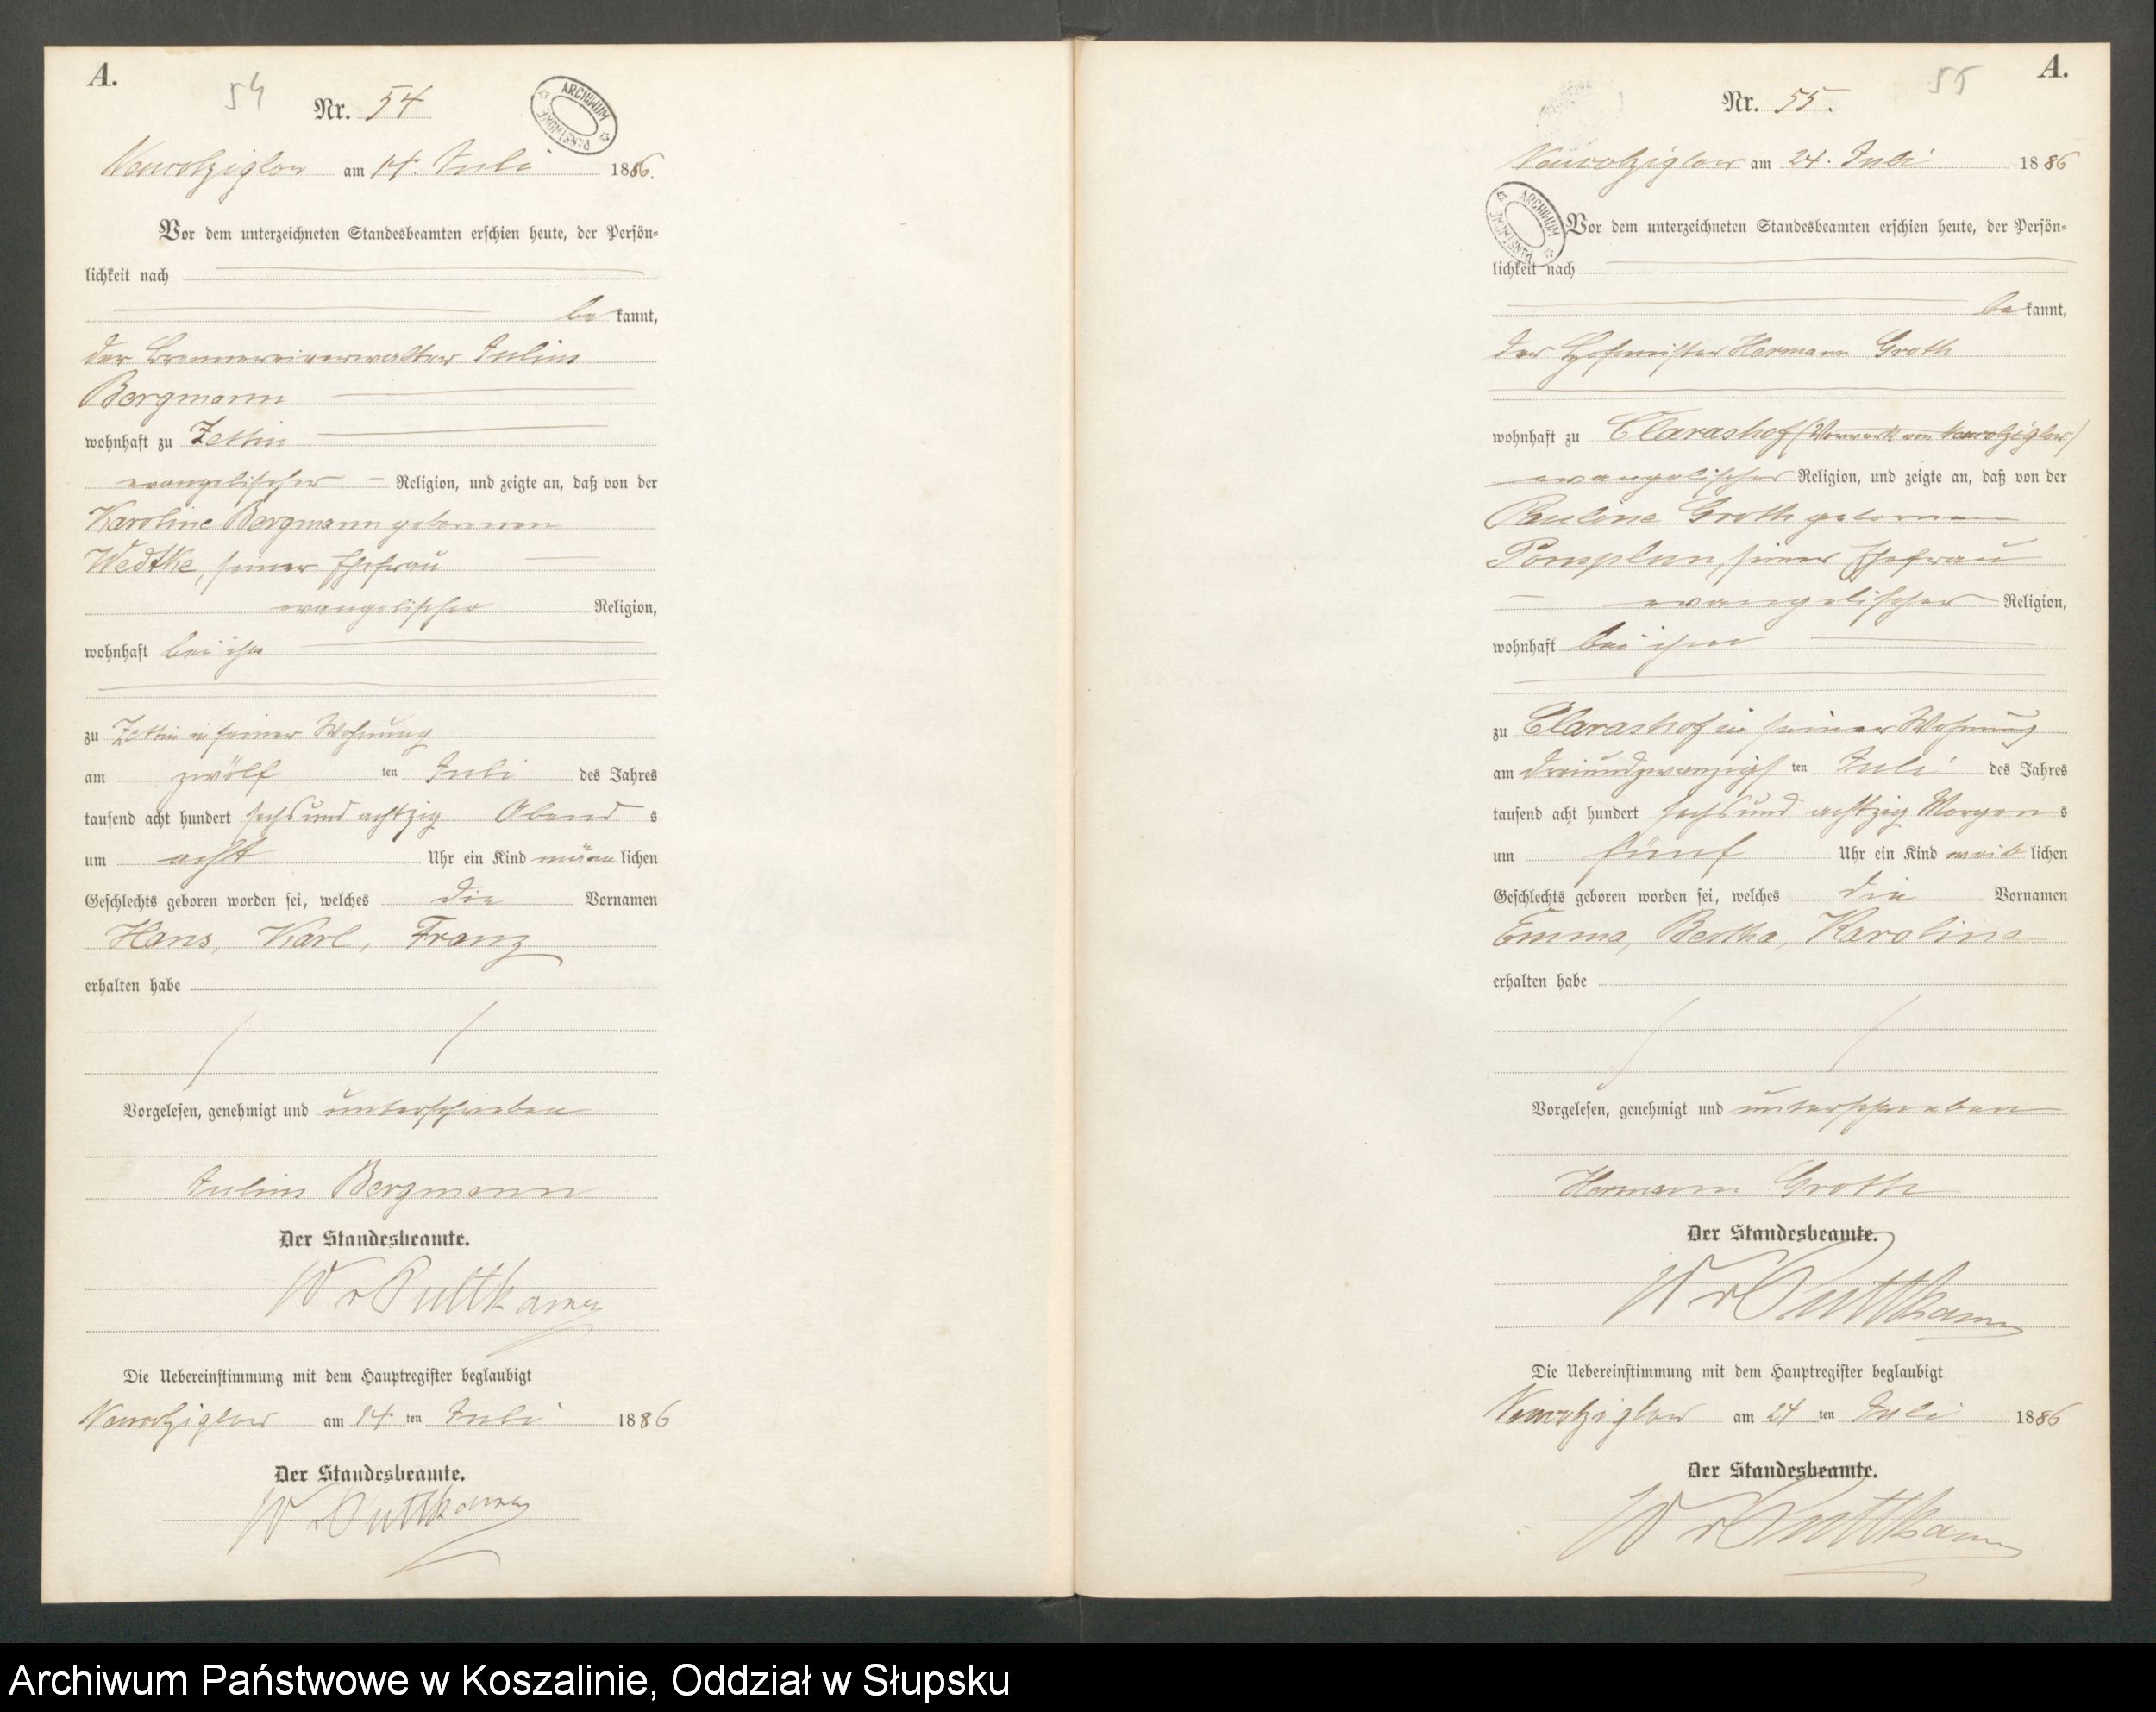 A.
54
Nr. 54
ARCHIWUM PAŃSTWOWE
Neuwolziglow am 14. Juli 1886.
Vor dem unterzeichneten Standesbeamten erschien heute, der Persön-
lichkeit nach
be kannt,
der Brennereiverwalter Julius
Bergmann
wohnhaft zu Zettin
evangelischer Religion, und zeigte an, daß von der
Karoline Bergmann geborenen
Wedtke, seiner Ehefrau
evangelischer Religion,
wohnhaft bei ihm
zu Zettin in seiner Wohnung
am zwölf ten Juli des Jahres
tausend acht hundert sechsundachtzig Abend s
um acht Uhr ein Kind männ lichen
Geschlechts geboren worden sei, welches die Vornamen
Hans, Karl, Franz
erhalten habe
Vorgelesen, genehmigt und unterschrieben
Julius Bergmann
Der Standesbeamte.
W v Puttkamer
Die Uebereinstimmung mit dem Hauptregister beglaubigt
Neuwolziglow am 14 ten Juli 1886
Der Standesbeamte.
W v Puttkamer
A.
55
Nr. 55.
Neuwolziglow am 24. Juli 1886
ARCHIWUM PAŃSTWOWE
Vor dem unterzeichneten Standesbeamten erschien heute, der Persön-
lichkeit nach
be kannt,
der Hofmeister Hermann Groth
wohnhaft zu Clarashof (Vorwerk von Neuwolziglow)
evangelischer Religion, und zeigte an, daß von der
Pauline Groth geborenen
Pomplun, seiner Ehefrau
evangelischer Religion,
wohnhaft bei ihm
zu Clarashof in seiner Wohnung
am dreiundzwanzigs ten Juli des Jahres
tausend acht hundert sechsund achtzig Morgen s
um fünf Uhr ein Kind weib lichen
Geschlechts geboren worden sei, welches die Vornamen
Emma, Bertha, Karoline
erhalten habe
Vorgelesen, genehmigt und unterschrieben
Hermann Groth
Der Standesbeamte.
W v Puttkamer
Die Uebereinstimmung mit dem Hauptregister beglaubigt
Neuwolziglow am 24 ten Juli 1886
Der Standesbeamte.
W v Puttkamer
Archiwum Państwowe w Koszalinie, Oddział w Słupsku